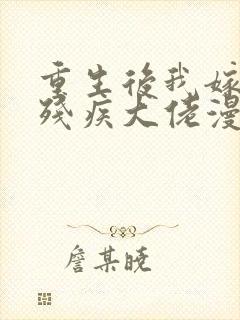 重生後我嫁
殘疾大佬漫
詹某曉